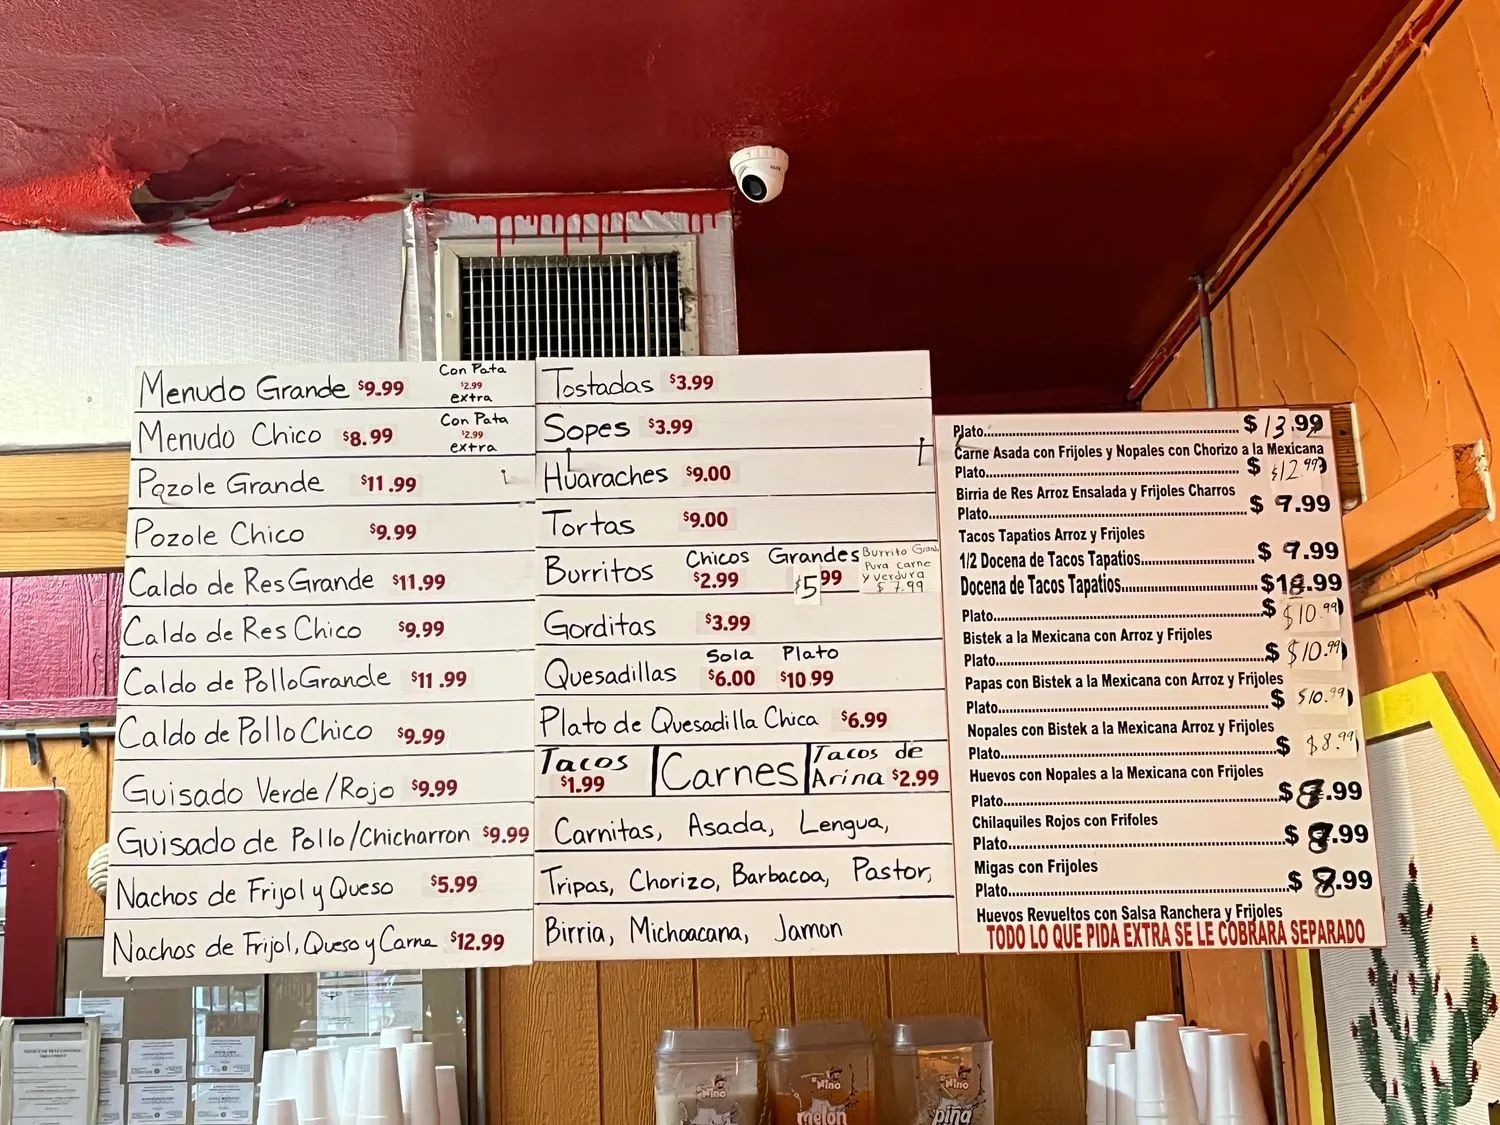 Menudo Grande $9.99 Con Pata $2.99 extra
Menudo Chico $8.99 Con Pata $2.99 extra
Pozole Grande $11.99
Pozole Chico $9.99
Caldo de Res Grande $11.99
Caldo de Res Chico $9.99
Caldo de Pollo Grande $11.99
Caldo de Pollo Chico $9.99
Guisado Verde/Rojo $9.99
Guisado de Pollo/Chicharron $9.99
Nachos de Frijol y Queso $5.99
Nachos de Frijol, Queso y Carne $12.99
Tostadas $3.99
Sopes $3.99
Huaraches $9.00
Tortas $9.00
Burritos Chicos $2.99 Grandes $5.99
Burrito Grande
Pura Carne
y verdura
$7.99
Gorditas $3.99
Quesadillas Sola $6.00 Plato $10.99
Plato de Quesadilla Chica $6.99
Tacos $1.99
Carnes
Tacos de Arina $2.99
Carnitas, Asada, Lengua,
Tripas, Chorizo, Barbacoa, Pastor,
Birria, Michoacana, Jamon
Plato........ $13.99
Carne Asada con Frijoles y Nopales con Chorizo a la Mexicana
Plato........ $ $12.99
Birria de Res Arroz Ensalada y Frijoles Charros
Plato........ $ 7.99
Tacos Tapatios Arroz y Frijoles
1/2 Docena de Tacos Tapatios........ $ 9.99
Docena de Tacos Tapatios........ $18.99
Plato........ $ $10.99
Bistek a la Mexicana con Arroz y Frijoles
Plato........ $ $10.99
Papas con Bistek a la Mexicana con Arroz y Frijoles
Plato........ $ $10.99
Nopales con Bistek a la Mexicana Arroz y Frijoles
Plato........ $ $8.99
Huevos con Nopales a la Mexicana con Frijoles
Plato........ $ 8.99
Chilaquiles Rojos con Frifoles
Plato........ $ 8.99
Migas con Frijoles
Plato........ $ 8.99
Huevos Revueltos con Salsa Ranchera y Frijoles
TODO LO QUE PIDA EXTRA SE LE COBRARA SEPARADO
Nino
Nino
melón
Nino
piña